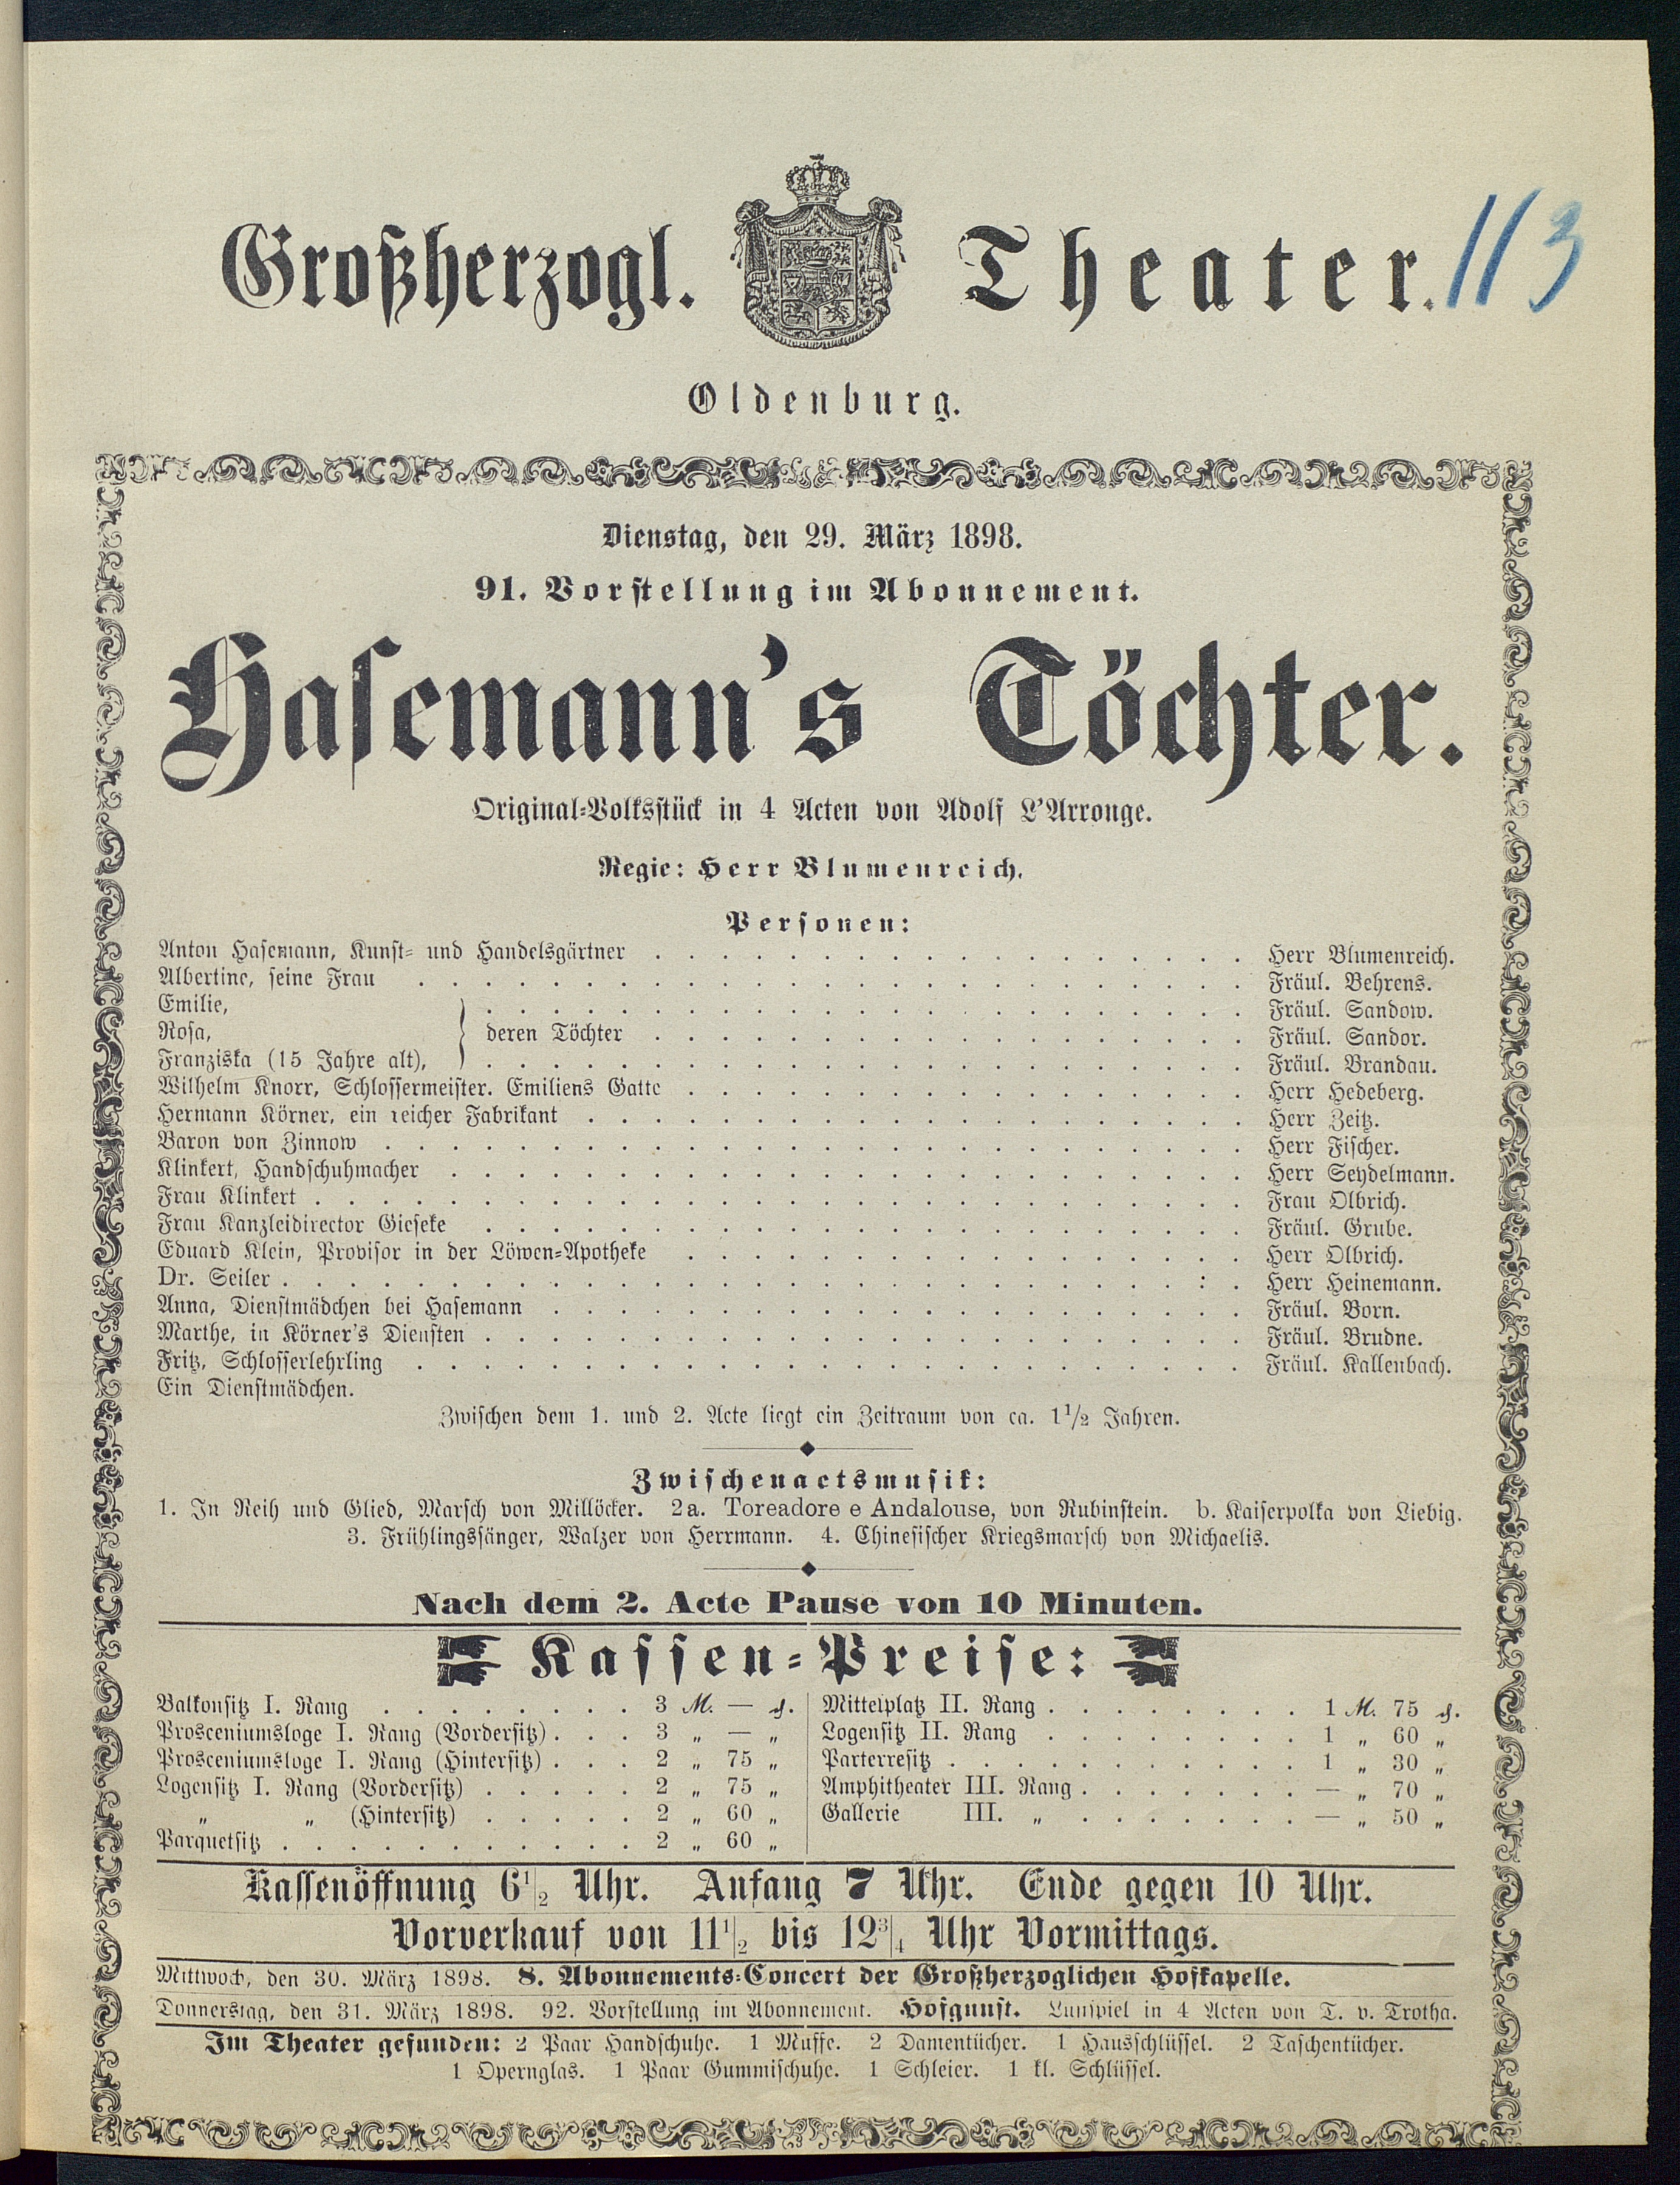 Großherzogl. Theater. 113
Oldenburg.
Dienstag, den 29. März 1898.
91. Vorstellung im Abonnement.
Hasemann's Töchter.
Original-Volksstück in 4 Acten von Adolf L'Arronge.
Regie: Herr Blumenreich.
Personen:
Anton Hasemann, Kunst- und Handelsgärtner . . . . . Herr Blumenreich.
Albertine, seine Frau . . . . . Fräul. Behrens.
Emilie, . . . . . Fräul. Sandow.
Rosa, } deren Töchter . . . . . Fräul. Sandor.
Franziska (15 Jahre alt), . . . . . Fräul. Brandau.
Wilhelm Knorr, Schlossermeister. Emiliens Gatte . . . . . Herr Hedeberg.
Hermann Körner, ein reicher Fabrikant . . . . . Herr Zeitz.
Baron von Zinnow . . . . . Herr Fischer.
Klinkert, Handschuhmacher . . . . . Herr Seydelmann.
Frau Klinkert . . . . . Frau Olbrich.
Frau Kanzleidirector Gieseke . . . . . Fräul. Grube.
Eduard Klein, Provisor in der Löwen-Apotheke . . . . . Herr Olbrich.
Dr. Seiler . . . . . Herr Heinemann.
Anna, Dienstmädchen bei Hasemann . . . . . Fräul. Born.
Marthe, in Körner's Diensten . . . . . Fräul. Brudne.
Fritz, Schlosserlehrling . . . . . Fräul. Kallenbach.
Ein Dienstmädchen.
Zwischen dem 1. und 2. Acte liegt ein Zeitraum von ca. 1 1/2 Jahren.
Zwischenactsmusik:
1. In Reih und Glied, Marsch von Millöcker. 2a. Toreadore e Andalouse, von Rubinstein. b. Kaiserpolka von Liebig.
3. Frühlingssänger, Walzer von Herrmann. 4. Chinesischer Kriegsmarsch von Michaelis.
Nach dem 2. Acte Pause von 10 Minuten.
Kassen-Preise:
Balkonsitz I. Rang . . . . . 3 M. — ₰.
Prosceniumsloge I. Rang (Vordersitz) . . . 3 „ — „
Prosceniumsloge I. Rang (Hintersitz) . . . 2 „ 75 „
Logensitz I. Rang (Vordersitz) . . . . . 2 „ 75 „
„ „ (Hintersitz) . . . . . 2 „ 60 „
Parquetsitz . . . . . 2 „ 60 „
Mittelplatz II. Rang . . . . . 1 M. 75 ₰.
Logensitz II. Rang . . . . . 1 „ 60 „
Parterresitz . . . . . 1 „ 30 „
Amphitheater III. Rang . . . . . — „ 70 „
Gallerie III. „ . . . . . — „ 50 „
Kassenöffnung 6 1/2 Uhr. Anfang 7 Uhr. Ende gegen 10 Uhr.
Vorverkauf von 11 1/2 bis 12 3/4 Uhr Vormittags.
Mittwoch, den 30. März 1898. 8. Abonnements-Concert der Großherzoglichen Hofkapelle.
Donnerstag, den 31. März 1898. 92. Vorstellung im Abonnement. Hofgunst. Lustspiel in 4 Acten von T. v. Trotha.
Im Theater gefunden: 2 Paar Handschuhe. 1 Muffe. 2 Damentücher. 1 Hausschlüssel. 2 Taschentücher.
1 Opernglas. 1 Paar Gummischuhe. 1 Schleier. 1 kl. Schlüssel.